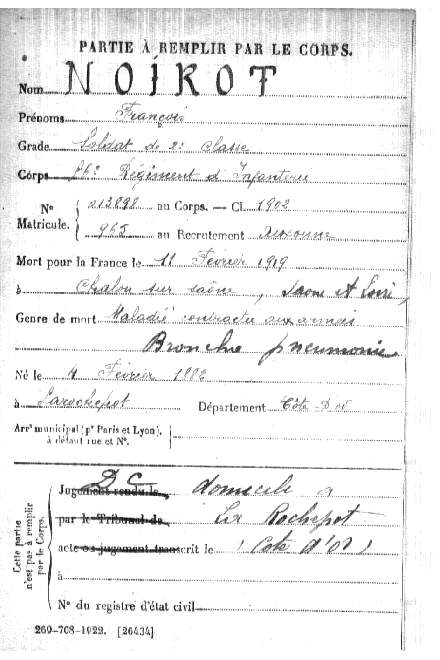 PARTIE À REMPLIR PAR LE CORPS.
Nom NOIROT
Prénoms François
Grade Soldat de 2e Classe
Corps Régiment d'Infanterie
N° 213898 au Corps. — Cl. 1902
Matricule. 965 au Recrutement Auxonne
Mort pour la France le 11 Février 1919
à Chalon sur saône, Saone et Loire
Genre de mort Maladie contractée aux armées
Broncho pneumonie
Né le 4 Février 1882
à Larochepot Département Côte D'or
Arrt municipal (pr Paris et Lyon),
à défaut rue et N°.
Cette partie n'est pas à remplir par le Corps.
DC
Jugement rendu le domicile a
par le Tribunal de La Rochepot
acte ou jugement transcrit le (Cote d'Or)
à
N° du registre d'état civil
269-708-1922. [26434]